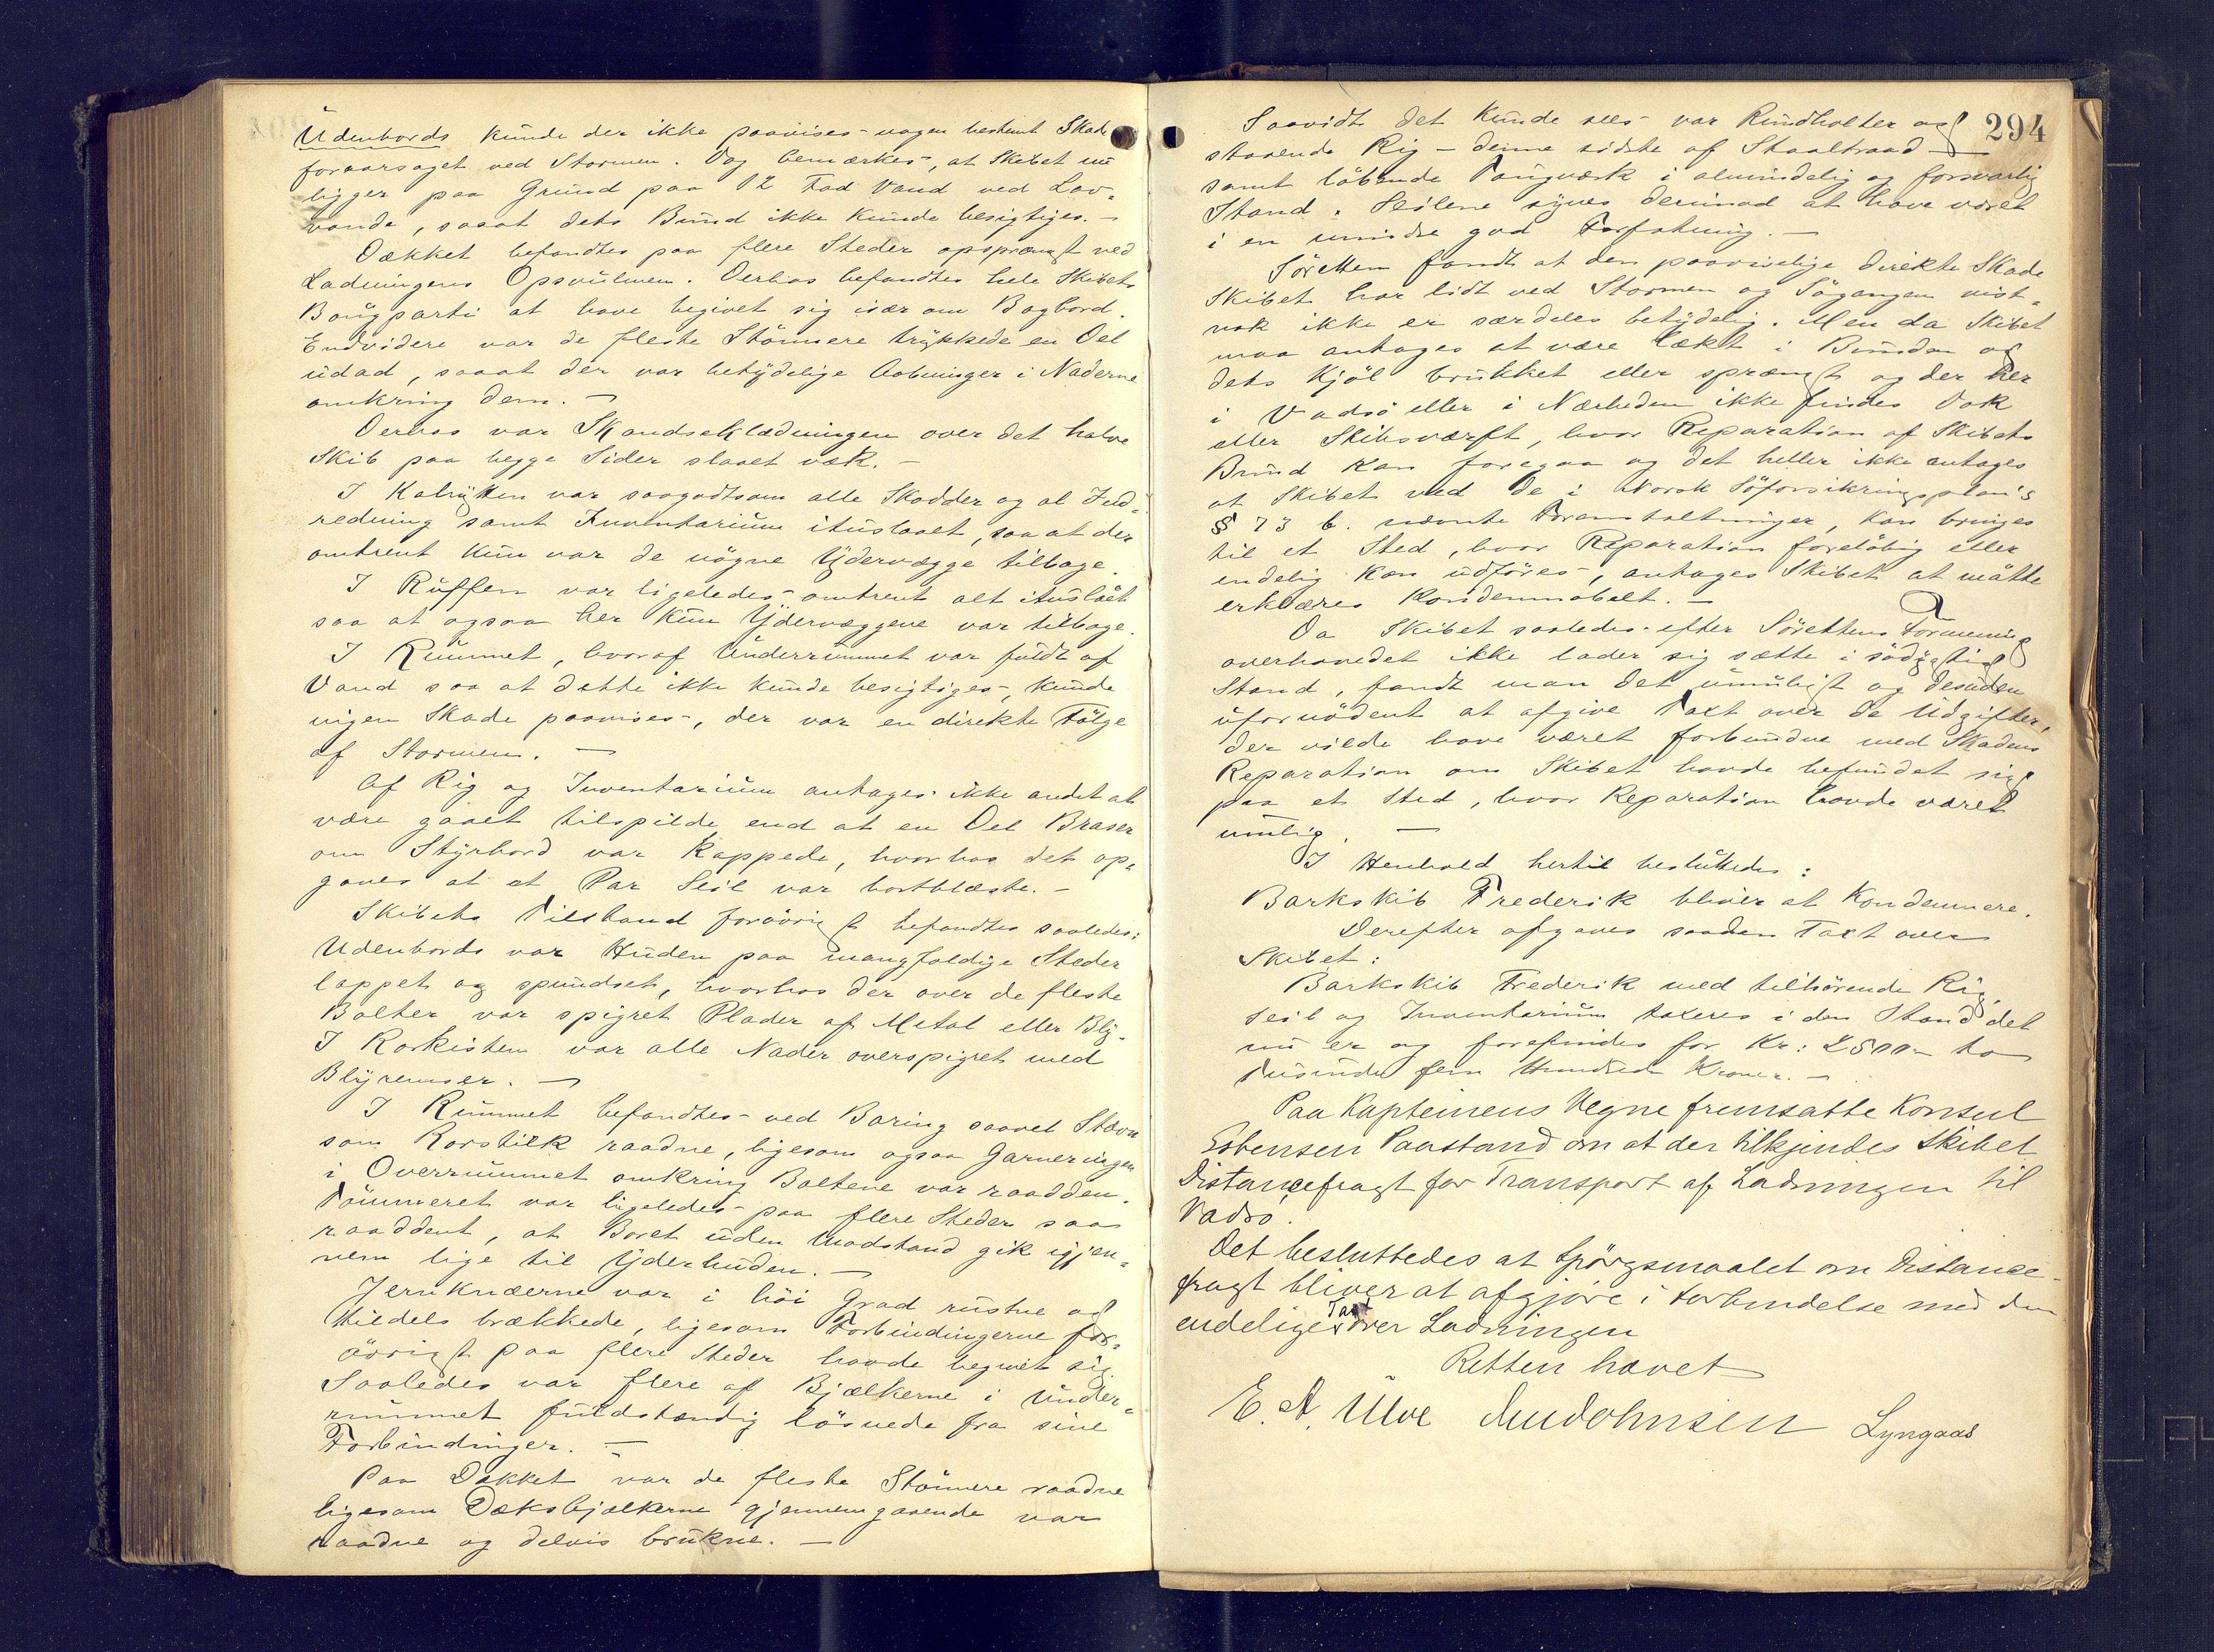 Udenbords kunde der ikke paavises nogen bestemt Skade
foraarsaget ved Stormen. Dog bemærkes, at Skibet nu
ligger paa Grund paa 12 Fod Vand ved Lav-
vande, saaat dets Bund ikke kunde besigtiges. -
Dækket befandtes paa flere Steder opsprængt ved
Ladningens Opsvulmen. Derhos befandtes hele Skibets
Bougparti at have begivet sig især om Bagbord.
Endvidere var de fleste Stönnere trykkede en Del
udad, saaat der var betydelige Aabninger i Naderne
omkring dem. -
Derhos var Skandseklædningen over det halve
Skib paa begge Sider slaaet væk. -
I Kahytten var saagodtsom alle Skodder og al Ind-
redning samt Inventarium ituslaaet, saa at der
omtrent kun var de nögne Ydervægge tilbage.
I Ruffen var ligeledes omtrent alt ituslået
saa at ogsaa her kun Ydervæggene var tilbage.
I Rummet, hvoraf Underrummet var fuldt af
Vand saa at dette ikke kunde besigtiges, kunde
ingen Skade paavises, der var en direkte Fölge
af Stormen. -
Af Rig og Inventarium antages ikke andet at
være gaaet tilspilde end at en Del Braser
om Styrbord var kappede, hvorhos det op-
gaves at et Par Seil var bortblæste. -
Skibets Tilstand forövrigt befandtes saaledes:
Udenbords var Huden paa mangfoldige Steder
lappet og spundset, hvorhos der over de fleste
Bolter var spigret Plader af Metal eller Bly.
I Rorkisten var alle Nader overspigret med
Blyremser. -
I Rummet befandtes ved Boring saavel Stævn
som Rorstilk raadne, ligesom ogsaa Garneringen
i Overrummet omkring Boltene var raadden.
Tömmeret var ligeledes paa flere Steder saa
raaddent, at Boret uden Modstand gik igjen-
nem lige til Yderhuden. -
Jernknæerne var i höi Grad rustne og
tildels brækkede, ligesom Forbindingerne for-
övrigt paa flere Steder havde begivet sig
Saaledes var flere af Bjælkerne i Under-
rummet fuldstændig lösnede fra sine
Forbindinger. -
Paa Dækket var de fleste Stönnere raadne
ligesom Dæksbjælkerne gjennemgaaende var
raadne og delvis brukne. -
294
Saavidt det kunde sees var Rundholter og
staaende Rig - denne sidste af Staaltraad -
samt löbende Tougværk i almindelig og forsvarlig
Stand. Seilene synes derimod at have været
i en mindre god Forfatning. -
Söretten fandt at den paaviselige direkte Skade
Skibet har lidt ved Stormen og Sögangen vist-
nok ikke er særdeles betydelig. Men da Skibet
maa antages at være lækt i Bunden og
dets Kjöl brukket eller sprængt og der her
i Vadsö eller i Nærheden ikke findes Dok
eller Skibsværft, hvor Reparation af Skibets
Bund kan foregaa og det heller ikke antages
at Skibet ved de i Norsk Söforsikringsplan's
§ 73 b. nævnte Foranstaltninger, kan bringes
til et Sted, hvor Reparation forelöbig eller
endelig kan udföres, antages Skibet at måtte
erklæres kondemnabelt. -
Da Skibet saaledes efter Sörettens Formening
overhovedet ikke lader sig sætte i södygtig
Stand, fandt man det umuligt og desuden
ufornödent at afgive Taxt over de Udgifter,
der vilde have været forbundne med Skadens
Reparation om Skibet havde befundet sig
paa et Sted, hvor Reparation havde været
mulig. -
I Henhold hertil besluttedes:
Barkskib Frederik bliver at kondemnere.
Derefter afgaves saaden Taxt over
Skibet:
Barkskib Frederik med tilhörende Rig,
Seil og Inventarium taxeres i den Stand det
nu er og forefindes for Kr: 2500- to
Tusinde fem Hundrede Kroner. -
Paa Kapteinens Vegne fremsatte Konsul
Esbensen Paastand om at der tilkjendes Skibet
Distancefragt for Transport af Ladningen til
Vadsö.
Det besluttedes at Spörgsmaalet om Distance-
fragt bliver at afgjöre i Forbindelse med den
endelige Taxt over Ladningen
Retten hævet
E. A. Ulve Lyngaas